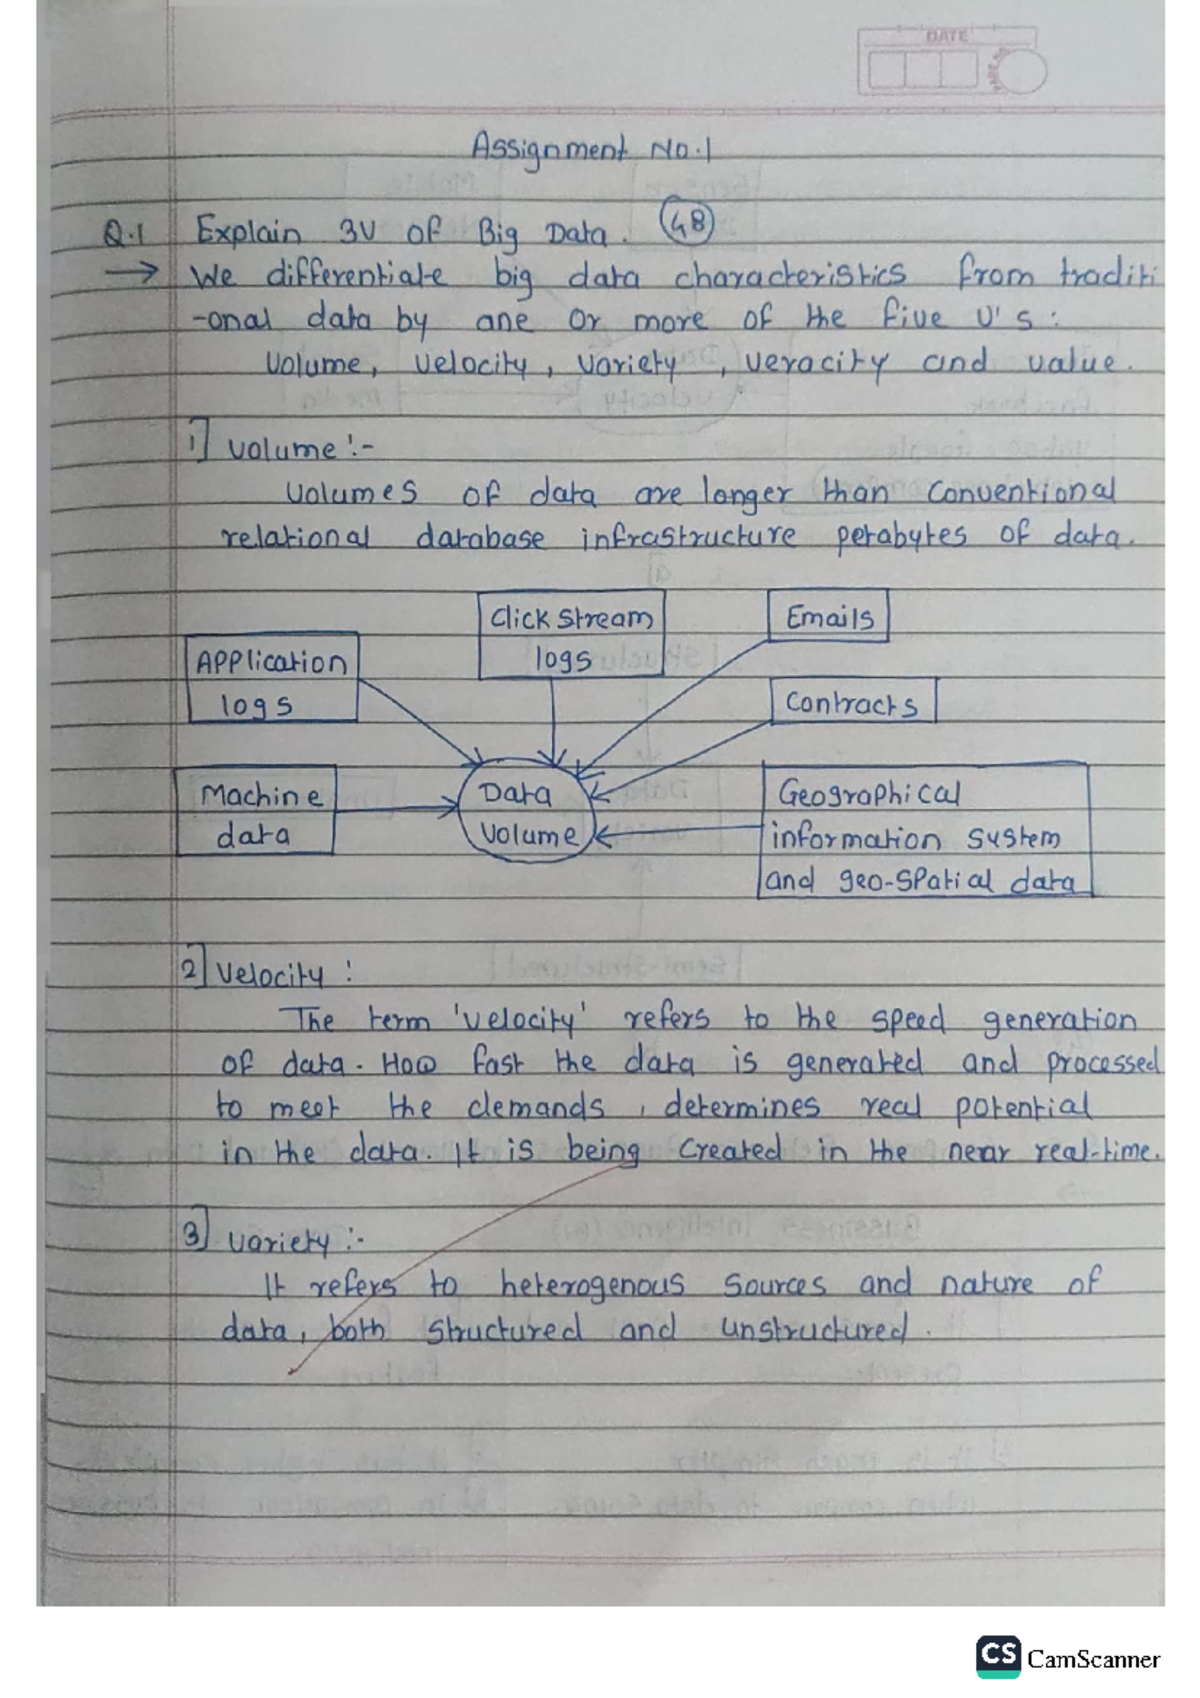 DATE
Assignment No.1
Q.1 Explain 3V of Big Data. 48
→ We differentiate big data characteristics from traditi
-onal data by one or more of the five V's:
Volume, velocity, variety, veracity and value.
1] Volume:-
Volumes of data are longer than conventional
relational database infrastructure petabytes of data.
Click stream
logs
Emails
Application
logs
Contracts
Machine
data
Data
Volume
Geographical
information system
and geo-spatial data
2] Velocity:
The term 'velocity' refers to the speed generation
of data. How fast the data is generated and processed
to meet the demands, determines real potential
in the data. It is being created in the near real-time.
3] Variety:-
It refers to heterogenous sources and nature of
data, both structured and unstructured.
CS CamScanner